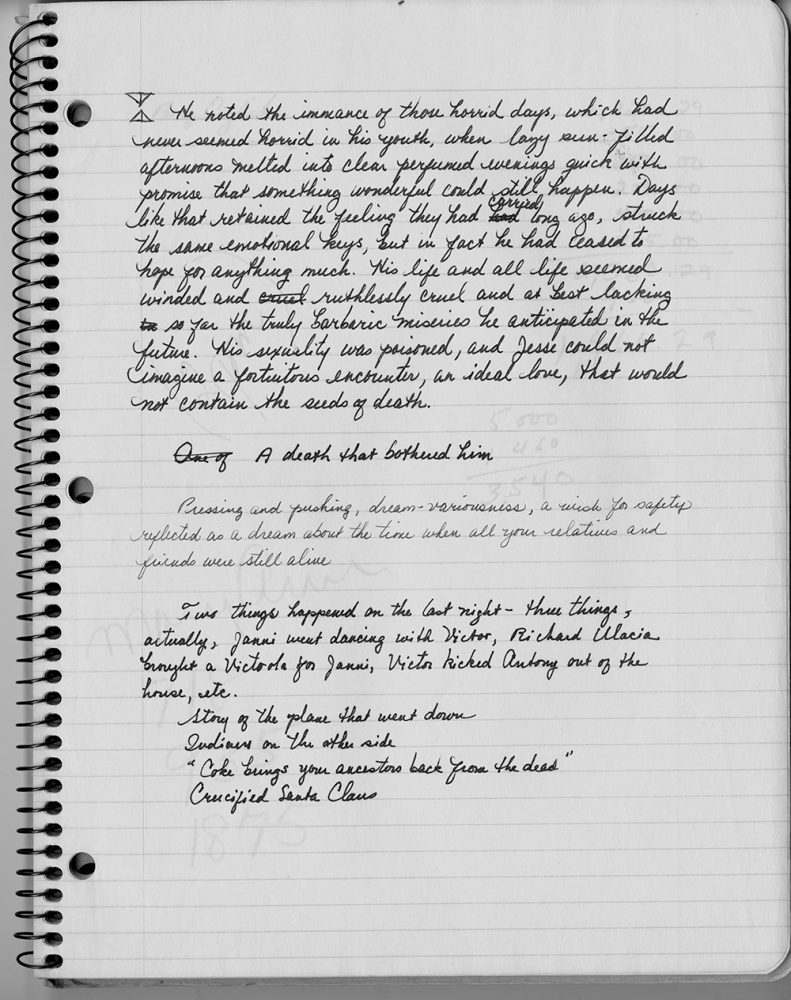 He noted the immance of those horrid days, which had
never seemed horrid in his youth, when lazy sun-filled
afternoons melted into clear perfumed evenings quick with
promise that something wonderful could still happen. Days
like that retained the feeling they had had carried long ago, struck
the same emotional keys, but in fact he had ceased to
hope for anything much. His life and all life seemed
winded and cruel ruthlessly cruel and at best lacking
in so far the truly barbaric miseries he anticipated in the
future. His sexuality was poisoned, and Jesse could not
imagine a fortuitous encounter, an ideal love, that would
not contain the seeds of death.
One of A death that bothered him
Pressing and pushing, dream-variousness, a wish for safety
reflected as a dream about the time when all your relatives and
friends were still alive
Two things happened on the last night - three things,
actually, Janni went dancing with Victor, Richard Ulacia
brought a Victrola for Janni, Victor kicked Antony out of the
house, etc.
Story of the plane that went down
Indians on the other side
"Coke brings your ancestors back from the dead"
Crucified Santa Claus
5000
3540
1875